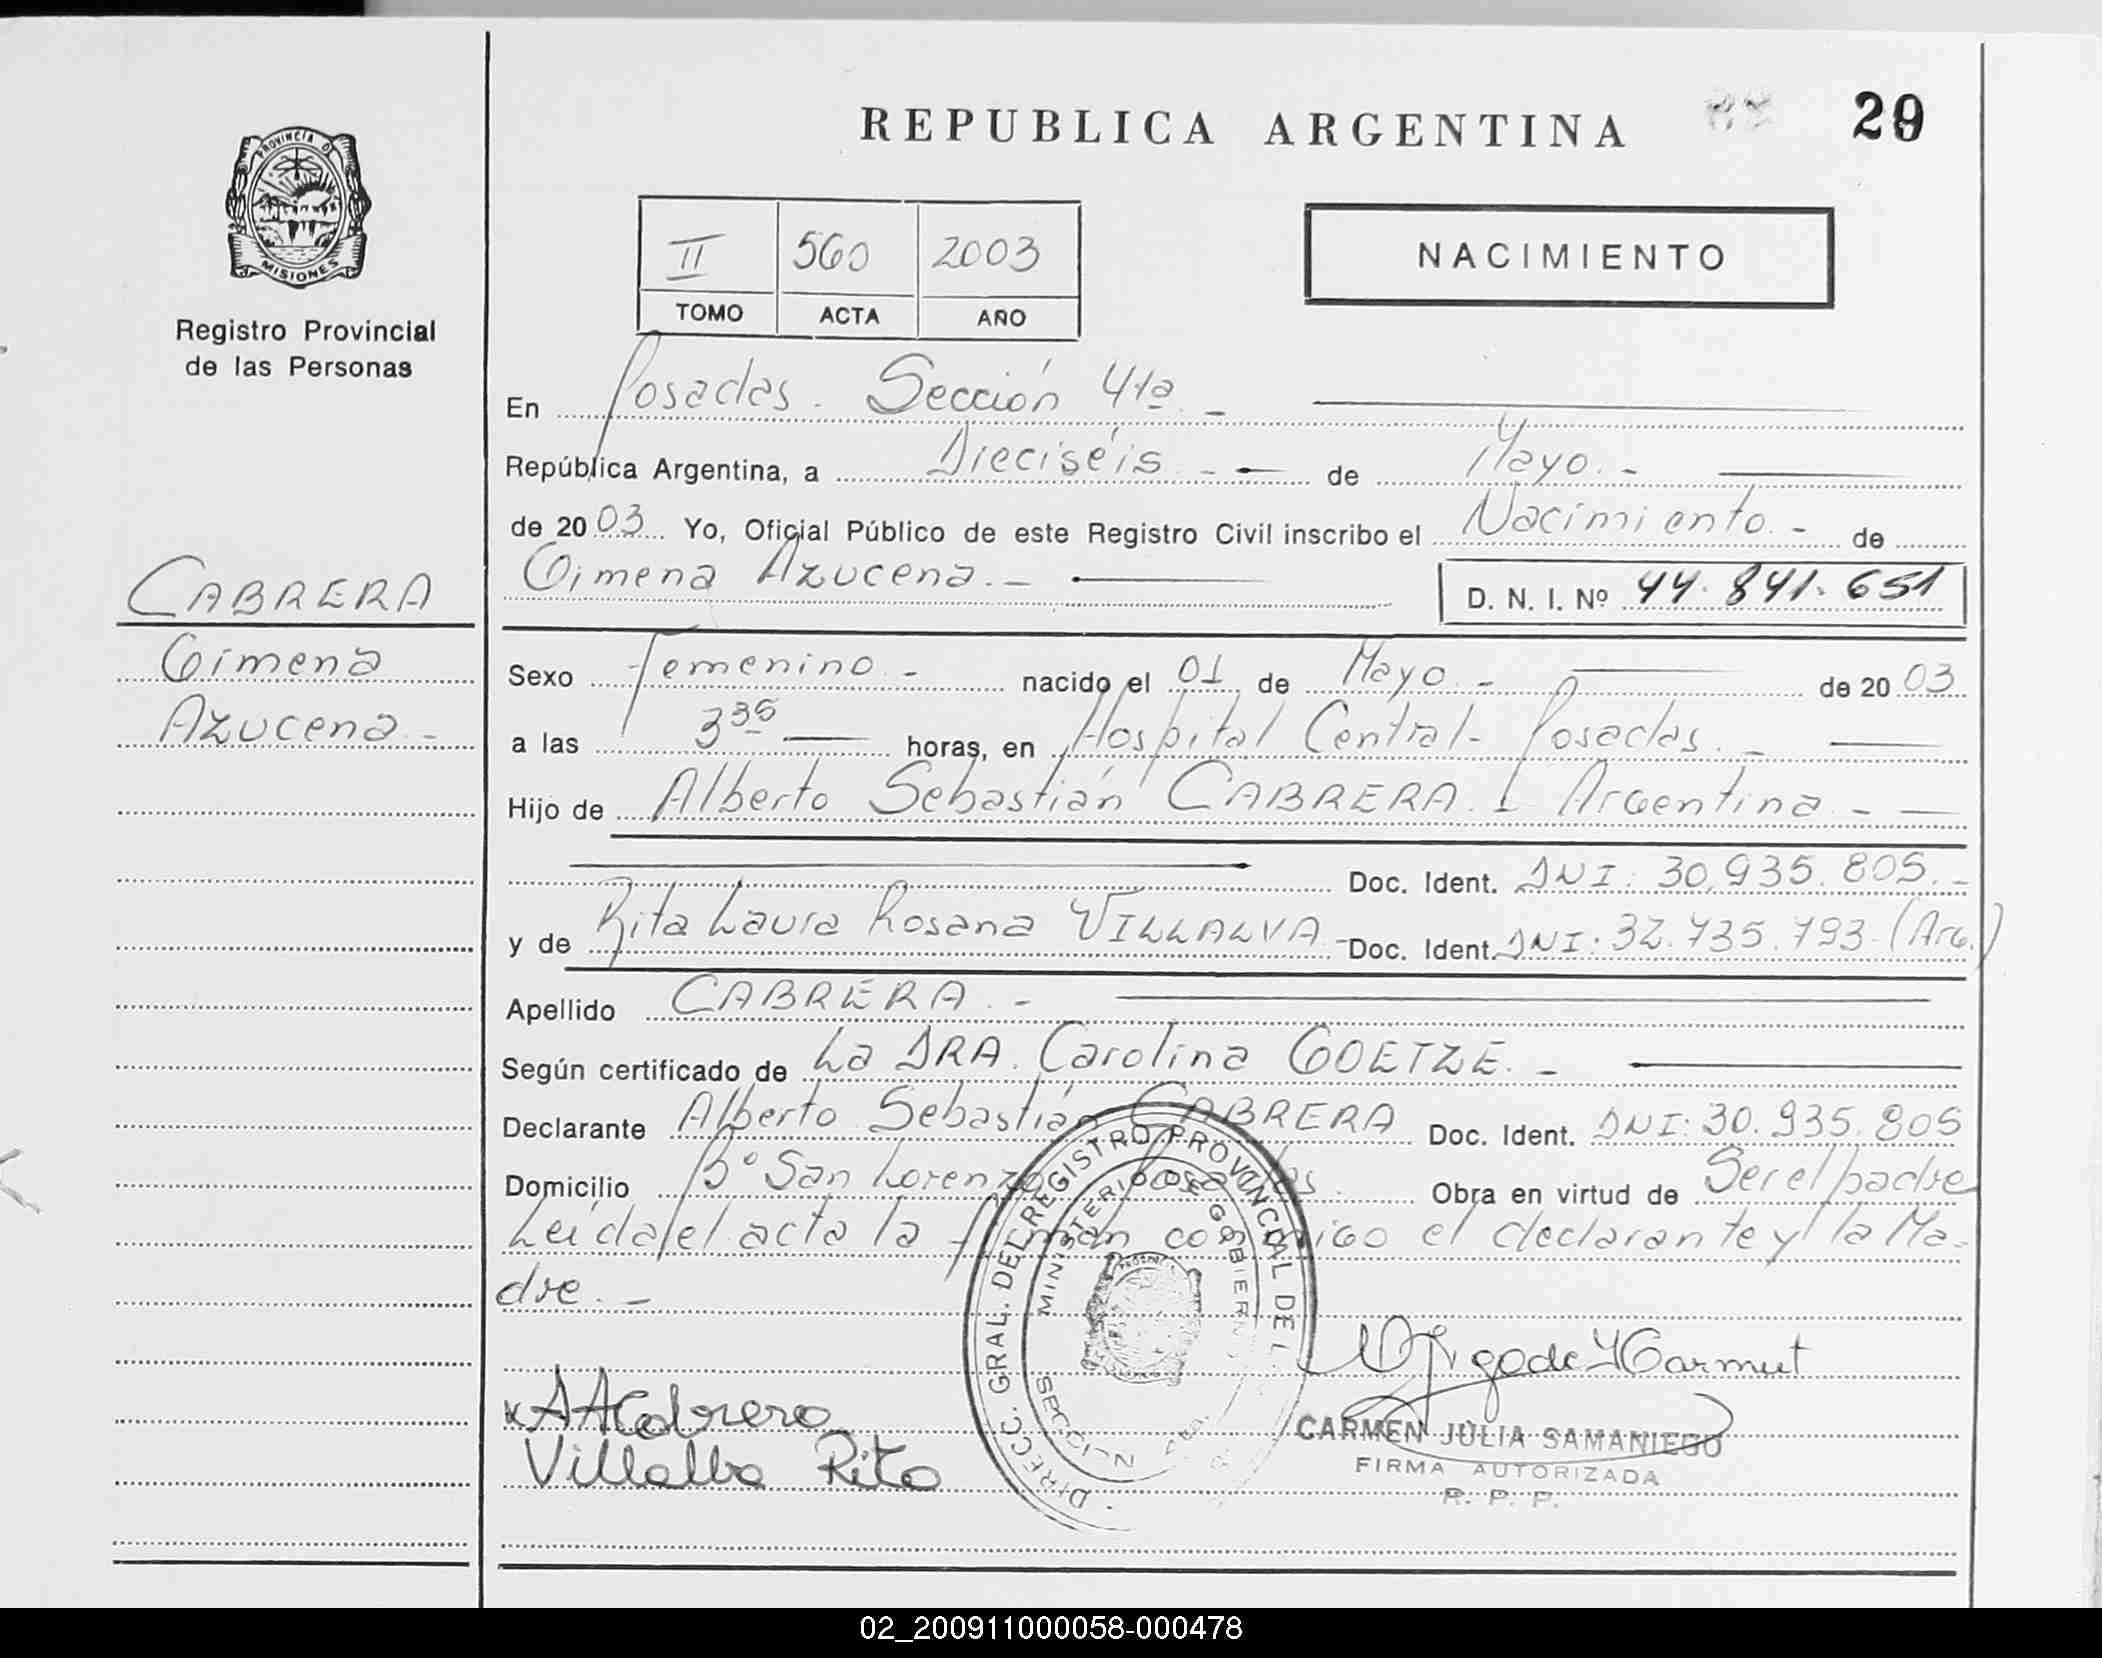 REPUBLICA ARGENTINA 29
PROVINCIA DE
MISIONES
Registro Provincial
de las Personas
II 560 2003
TOMO ACTA AÑO
NACIMIENTO
En Posadas. Sección 4ta.-
República Argentina, a Dieciséis.- de Mayo.-
de 2003 Yo, Oficial Público de este Registro Civil inscribo el Nacimiento.- de
Gimena Azucena.- D. N. I. Nº 44.841.651
CABRERA
Gimena
Azucena.-
Sexo Femenino.- nacido el 01 de Mayo.- de 2003
a las 3 35 horas, en Hospital Central- Posadas.-
Hijo de Alberto Sebastián CABRERA.- Argentina.-
Doc. Ident. DNI: 30.935.805.-
y de Rita Laura Rosana VILLALVA.- Doc. Ident. DNI: 32.735.793.(Arg.)
Apellido CABRERA.-
Según certificado de La DRA. Carolina GOETZE.-
Declarante Alberto Sebastián CABRERA Doc. Ident. DNI: 30.935.805
Domicilio Bº San Lorenzo Posadas. Obra en virtud de Ser el padre
Leída el acta la firman conmigo el declarante y la Ma-
dre.-
DIRECC. GRAL. DEL REGISTRO PROVINCIAL DE L
MINISTERIO DE GOBIERNO
A A Cabrera
Villalba Rita
CARMEN JULIA SAMANIEGO
FIRMA AUTORIZADA
R. P. P.
02_200911000058-000478